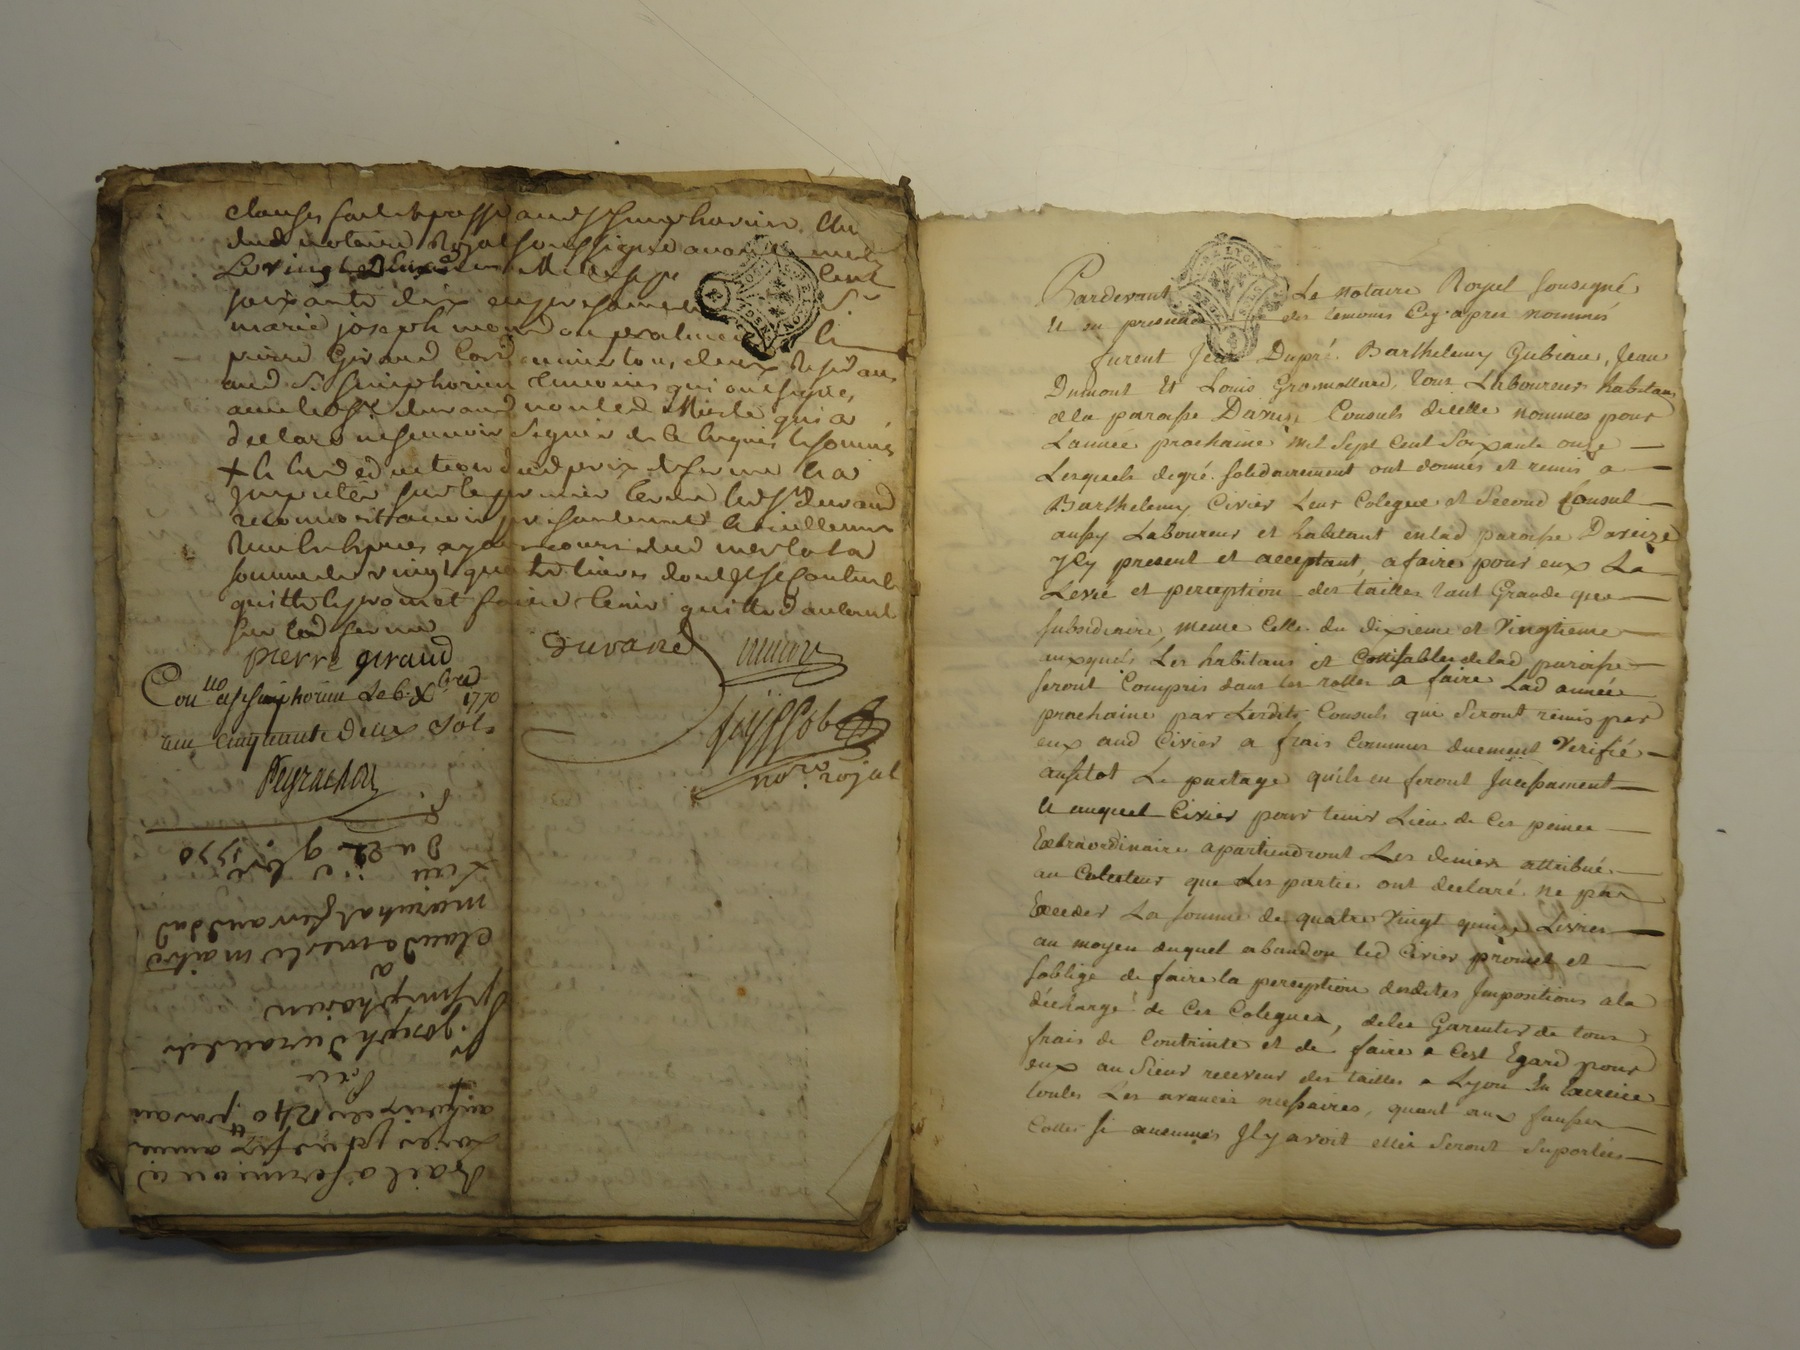 clauses fait et passé aud St Simphorien etu
dud notaire Royal soussigné avant midy
Le vingt Deux Mil sept Cent
soixante dix en presence de Sr
marie joseph et de
pierre Giraud Cordonnier tous deux residans
aud St Simphorien temoins qui ont signé,
avec led Sr durand non led Merle qui a
declaré ne scavoir signer de ce enquis et sommé
+ a
imputer sur le premier terme led Sr durand
reconnoit avoir presentement
dud merle la
somme de vingt quatre livres dont il se contente
quitte et promet faire tenir quitte d'autant
sur lad ferme
pierre giraud
durand
Conllé a St simphorien Le 6 Xbre 1770
reçu cinquante Deux sols
Peyrachon
nore royal
Bail a ferme
six années
240
Par
Sr joseph durand de
St simphorien
a
claude merle maitre
marechal ferrand dud
Lieu
Du 22 9bre 1770
Pardevant Le notaire Royal sousigné
Et en presence des temoins Cy-apres nommés
furent Jean Dupré, Barthelemy Gubian, Jean
Dumont Et Louis Grosmollard, tous Laboureurs habitans
de la paroisse Daveize, Consuls dicelle nommés pour
Lannée prochaine mil Sept Cent Soixante onze
Lesquels de gré solidairement ont donnés et remis a
Barthelemy Civier Leur Colegue et Second Consul
aussy Laboureur et habitant en lad paroisse Daveize
Jcy present et acceptant, a faire pour eux La
Levée et perception des tailles tant Grande que
subsidiaire, meme Celle du dixieme et Vingtieme
auxquels Les habitans et Cottisables de lad paroisse
seront Compris dans les rolles a faire Lad année
prochaine par Lesdits Consuls qui Seront remis par
eux aud Civier a frais Communs duement Verifié
ausitot Le partage qu'ils en feront Jncessament
Et auquel Civier pour tenir Lieu de Ces peines
Extraordinaire apartiendront Les deniers attribué
au Colecteur que Les partie ont declaré ne pas
Exceder La somme de quatre Vingt quinze Livres
au moyen duquel abandon led Civier promet et
s'oblige de faire la perception desdites Jmpositions a la
décharge de Ces Colegues, de les Garentir de tous
frais de Contrainte et de faire a Cest Egard pour
eux au Sieur receveur des tailles a Lyon
toutes Les avances necessaires, quant aux fausses
Cottes si aucunnes Jl y avoit elles Seront suportées